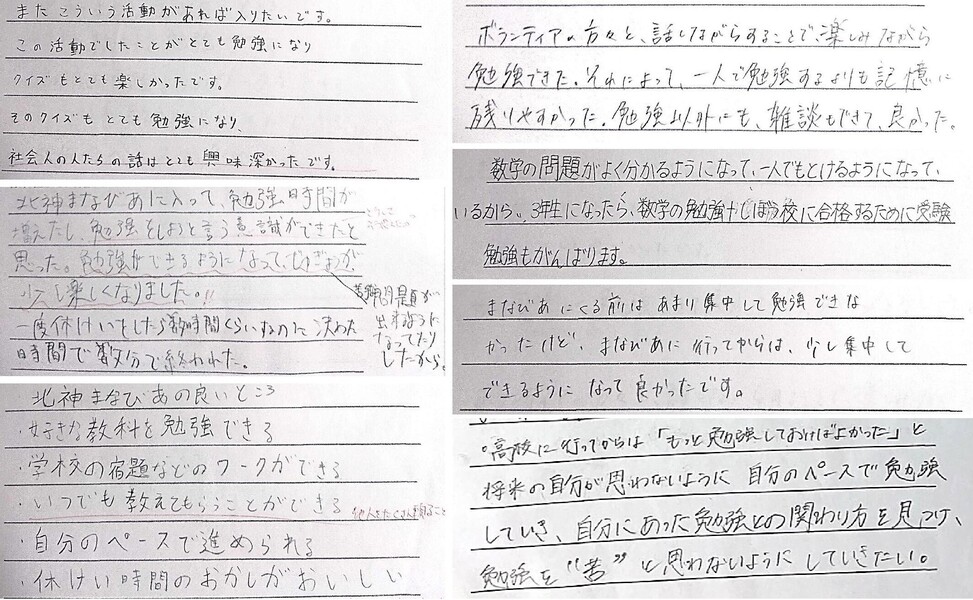 また こういう活動があれば入りたいです。
この活動でしたことがとても勉強になり
クイズもとても楽しかったです。
そのクイズも とても勉強になり、
社会人の人たちの話はとても興味深かったです。
北神まなびあに入って、勉強時間が
増えたし、勉強をしようと言う意識ができたと
思った。勉強ができるようになって、じゅぎょうが
少し楽しくなりました。!!
問題が
出来るように
なってたり
したから。
一度休けいをしたら数時間くらいするのに 決めた
時間で数分で終われた。
北神まなびあの良いところ
・好きな教科を勉強できる
・学校の宿題などのワークができる
・いつでも教えてもらうことができる
・自分のペースで進められる
・休けい時間のおかしがおいしい
ボランティアの方々と、話しながらすることで、楽しみながら
勉強できた。それによって、一人で勉強するよりも記憶に
残りやすかった。勉強以外にも、雑談もできて、良かった。
数学の問題がよく分かるようになって、一人でもとけるようになって、
いるから、3年生になったら、数学の勉強+しぼう校に合格するために受験
勉強もがんばります。
まなびあ にくる前は あまり集中して勉強できな
かったけど、まなびあに行ってからは、少し集中して
できるように なって良かったです。
・高校に行ってからは「もっと勉強しておけばよかった」と
将来の自分が思わないように 自分のペースで勉強
していき、自分にあった勉強との関わり方を見つけ、
勉強を“苦”と思わないように していきたい。